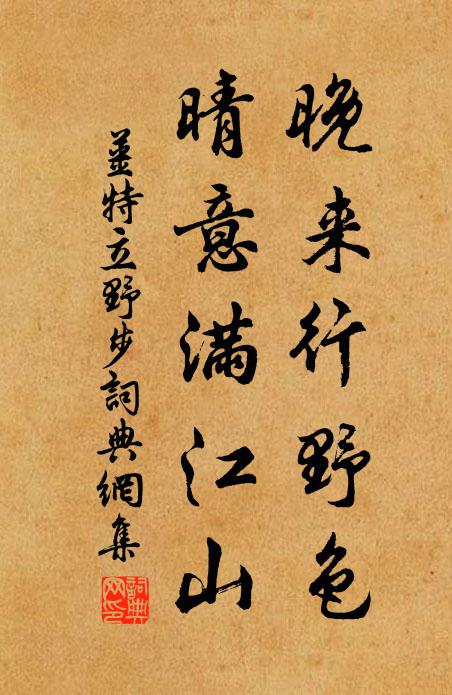 晚来行野色
晴意满江山
姜特立野步詞典網集
詞典網印